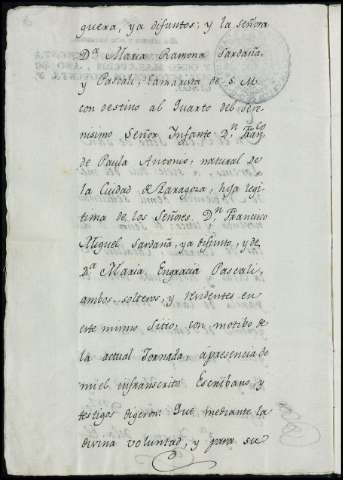 guera, ya difuntos; y la señora
D.ª Maria Ramona Sardaña,
y Pascali, Camarista de S. M.
con destino al Quarto del Sere-
nisimo Señor Infante D.n Fran.co
de Paula Antonio, natural de
la Ciudad de Zaragoza, hija legi-
tima de los Señores D.n Francisco
Miguel Sardaña, ya difunto, y de
D.ª Maria Engracia Pascali,
ambos solteros, y residentes en
este mismo Sitio, con motibo de
la actual Jornada, a presencia de
mi el infrascrito Escribano, y
testigos digeron: Que mediante la
divina voluntad, y para su